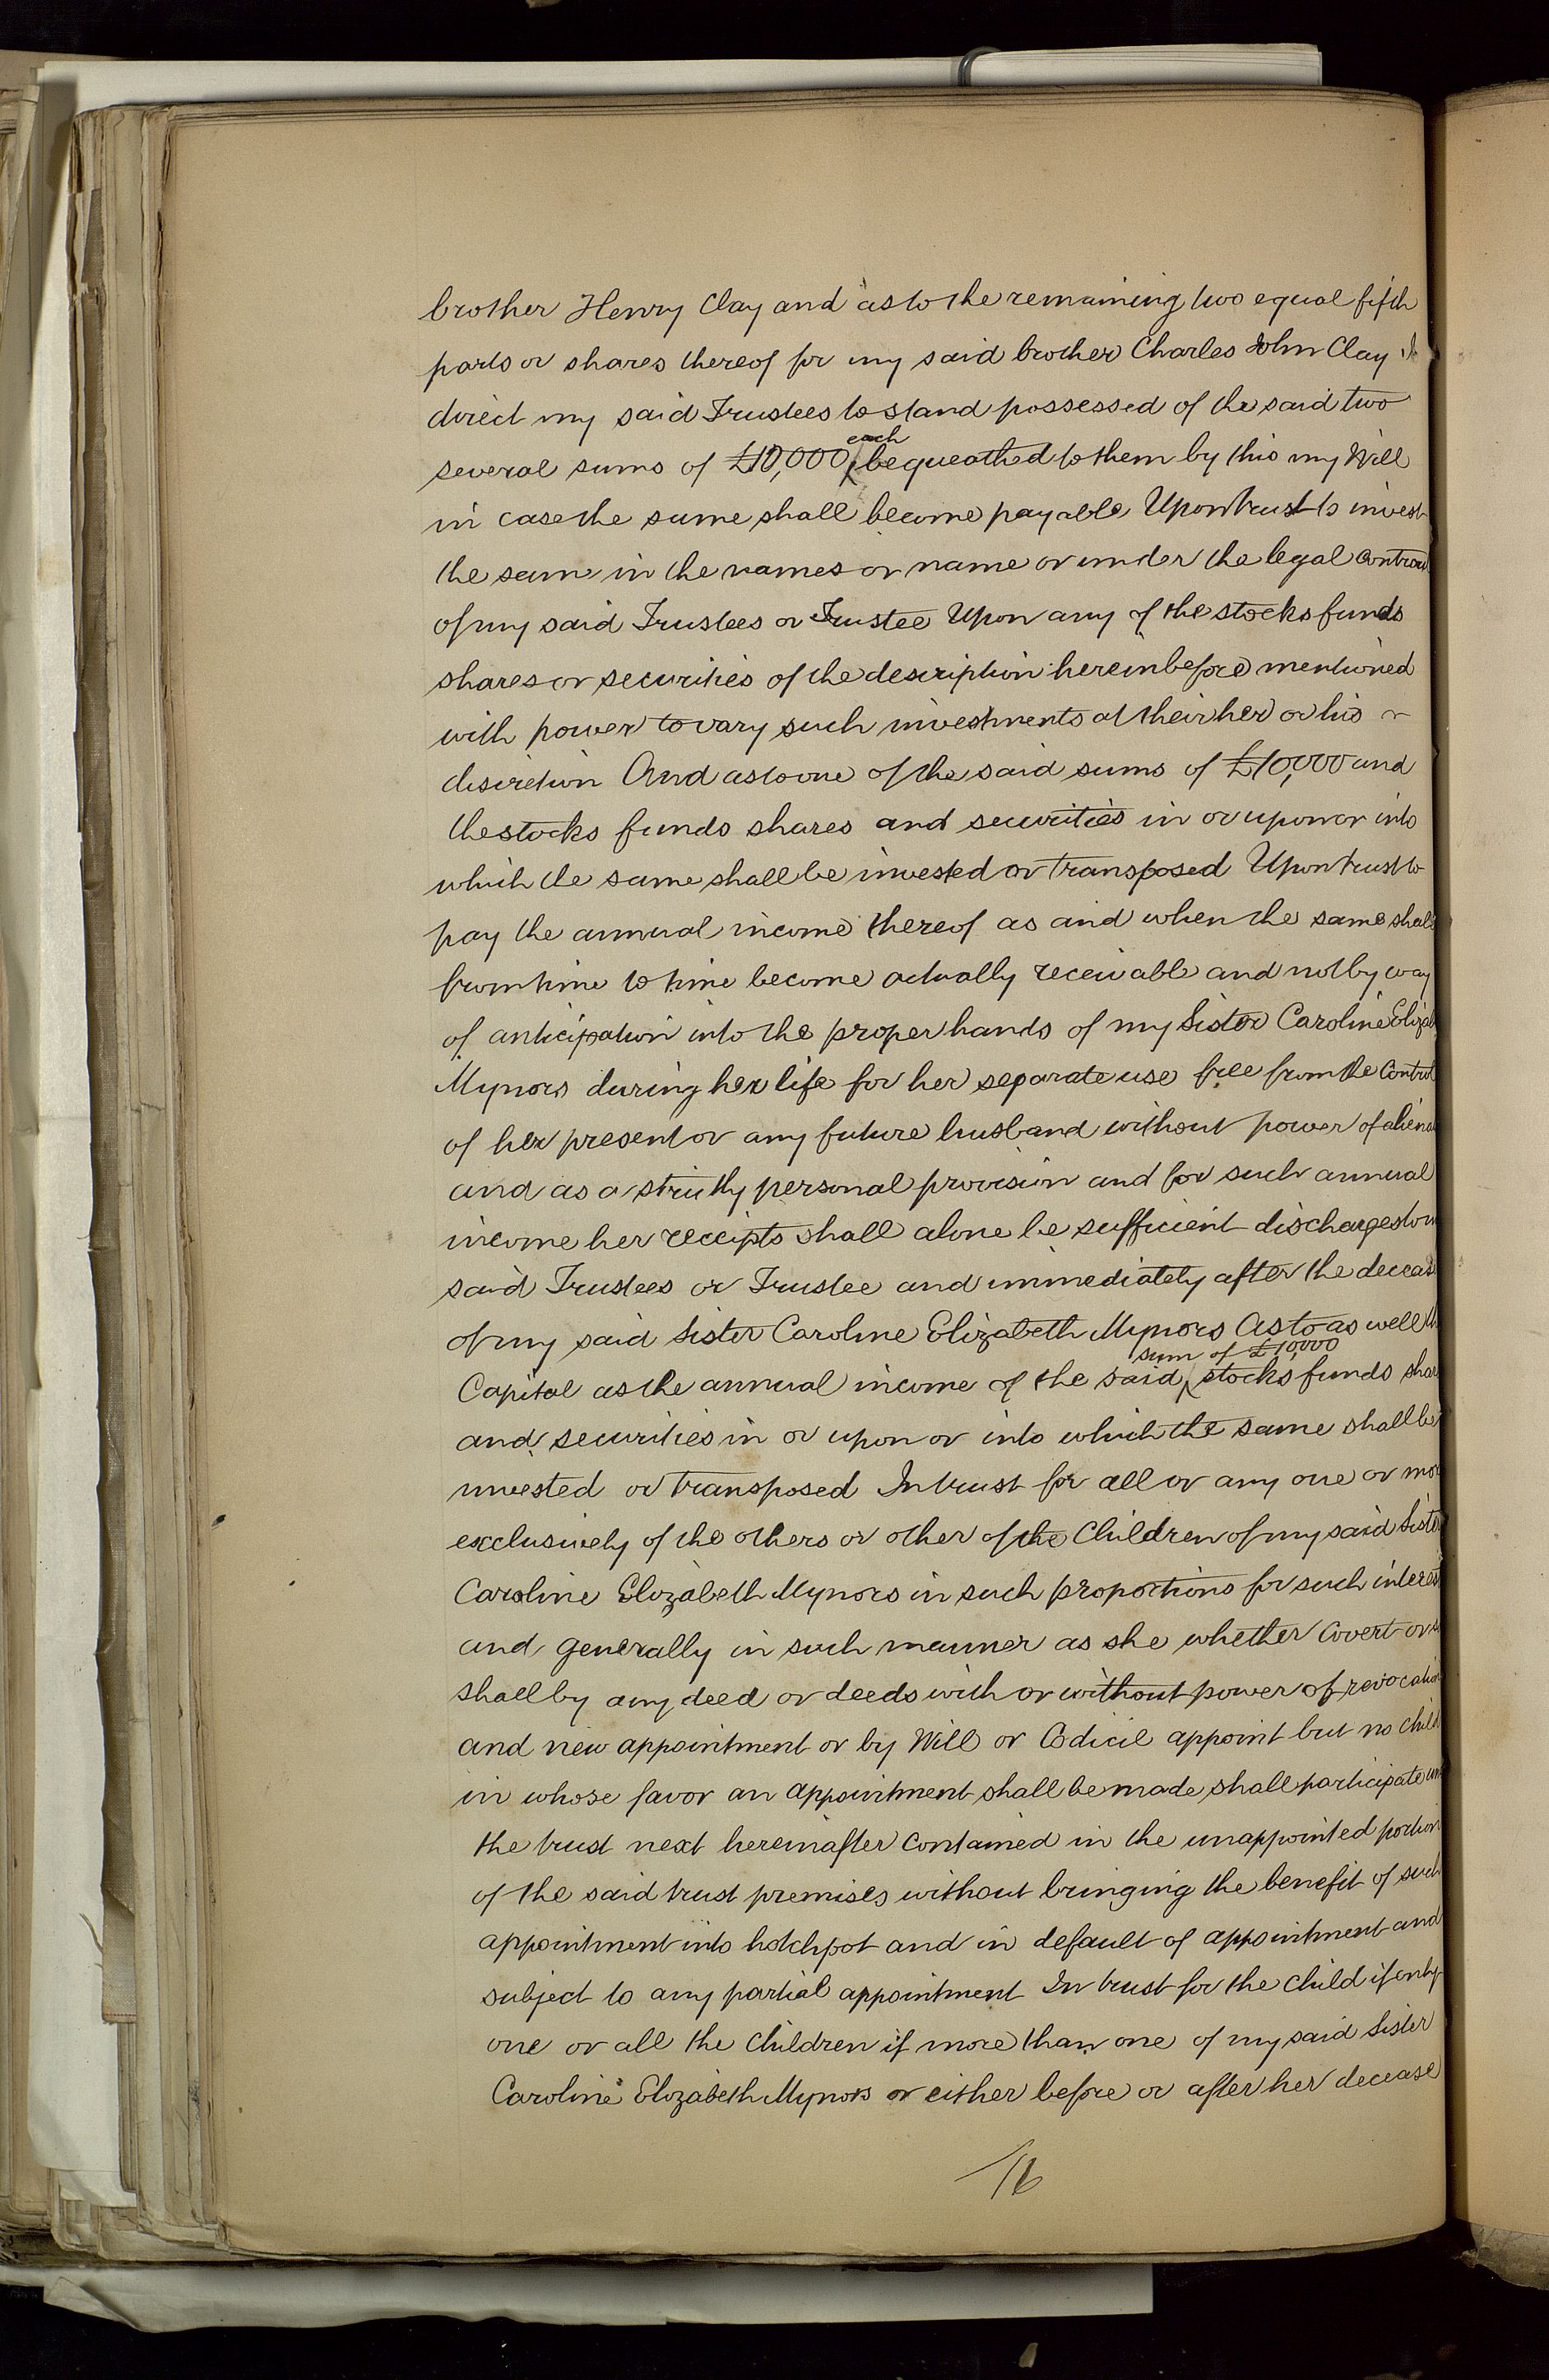 brother Henry Clay and as to the remaining two equal fifth
parts or shares thereof for my said brother Charles John Clay I
direct my said Trustees to stand possessed of the said two
several sums of £10,000 each bequeathed to them by this my Will
in case the same shall become payable Upon trust to invest
the same in the names or name or under the legal control
of my said Trustees or Trustee Upon any of the stocks funds
shares or securities of the description hereinbefore mentioned
with power to vary such investments at their her or his
discretion And as to one of the said sums of £10,000 and
the stocks funds shares and securities in or upon or into
which the same shall be invested or transposed Upon trust to
pay the annual income thereof as and when the same shall
from time to time become actually receivable and not by way
of anticipation into the proper hands of my Sister Caroline Elizab
Mynors during her life for her separate use free from the Control
of her present or any future husband without power of aliena
and as a strictly personal provision and for such annual
income her receipts shall alone be sufficient discharges to m
said Trustees or Trustee and immediately after the deceas
of my said Sister Caroline Elizabeth Mynors As to as well th
Capital as the annual income of the said sum of £10,000 stocks funds shar
and securities in or upon or into which the same shall be
invested or transposed In trust for all or any one or mor
exclusively of the others or other of the Children of my said Sister
Caroline Elizabeth Mynors in such proportions for such interest
and generally in such manner as she whether Covert or s
shall by any deed or deeds with or without power of revocation
and new appointment or by Will or Codicil appoint but no child
in whose favor an appointment shall be made shall participate un
the trust next hereinafter contained in the unappointed portion
of the said trust premises without bringing the benefit of such
appointment into hotchpot and in default of appointment and
subject to any partial appointment In trust for the Child if only
one or all the Children if more than one of my said Sister
Caroline Elizabeth Mynors or either before or after her decease
16